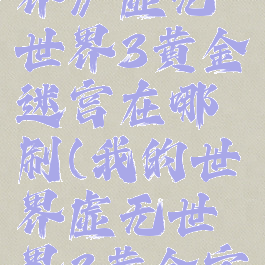 界》虚无
世界3黄金
迷宫在哪
刷(我的世
界虚无世
界3黄金宫